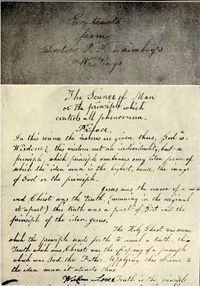 Extracts
from
Doctor P. P. Quimby's
Writings
The Science of Man
or the principle which
controls all phenomena.
Preface.
In this science the names are given thus, God is
Wisdom. This wisdom not an individuality but a
principle, which principle embraces every idea form, of
which the idea man is the highest, hence, the image
of God or the principle.
Jesus was the name of a man
and Christ was the Truth, (meaning in the original
set apart) this truth was a part of God and the
principle of the idea Jesus.
The Holy Ghost was
which the principle truth to
Truth which was Christ was the of a principle
which was God the Father. Applying this science to
the idea man it stands thus
Wisdom Love Truth is the principle